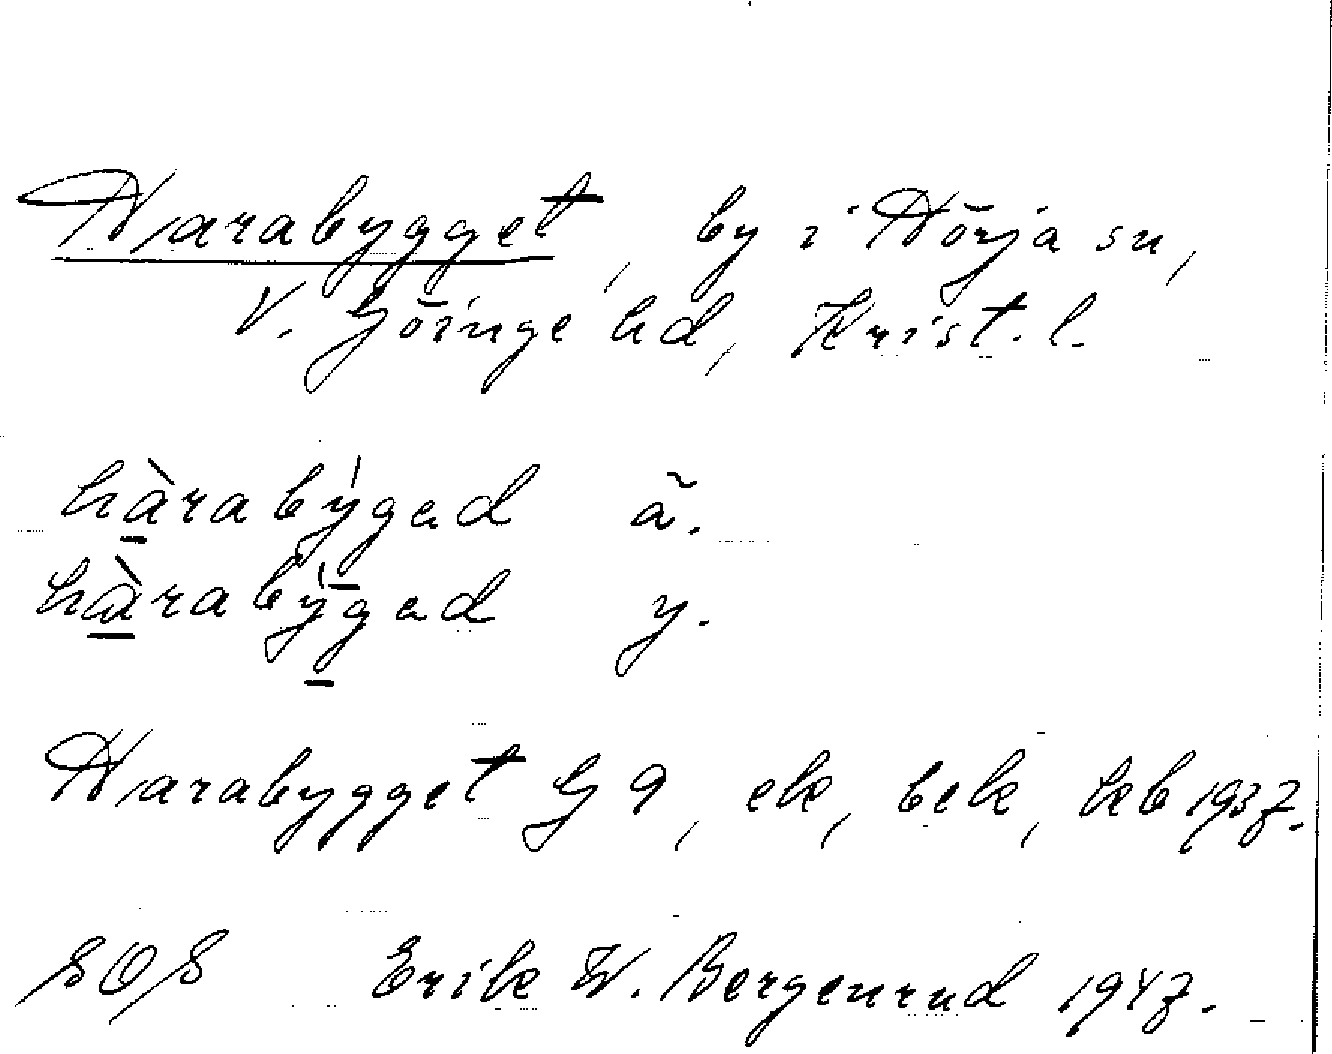 Harabygget, by i Hörja sn,
V. Göinge hd, Krist. l.
hàrabýgad ä.
hàrabýgad y.
Harabygget G 9, ek, bek, kcb 1937.
SOS Erik W. Bergenrud 1947.